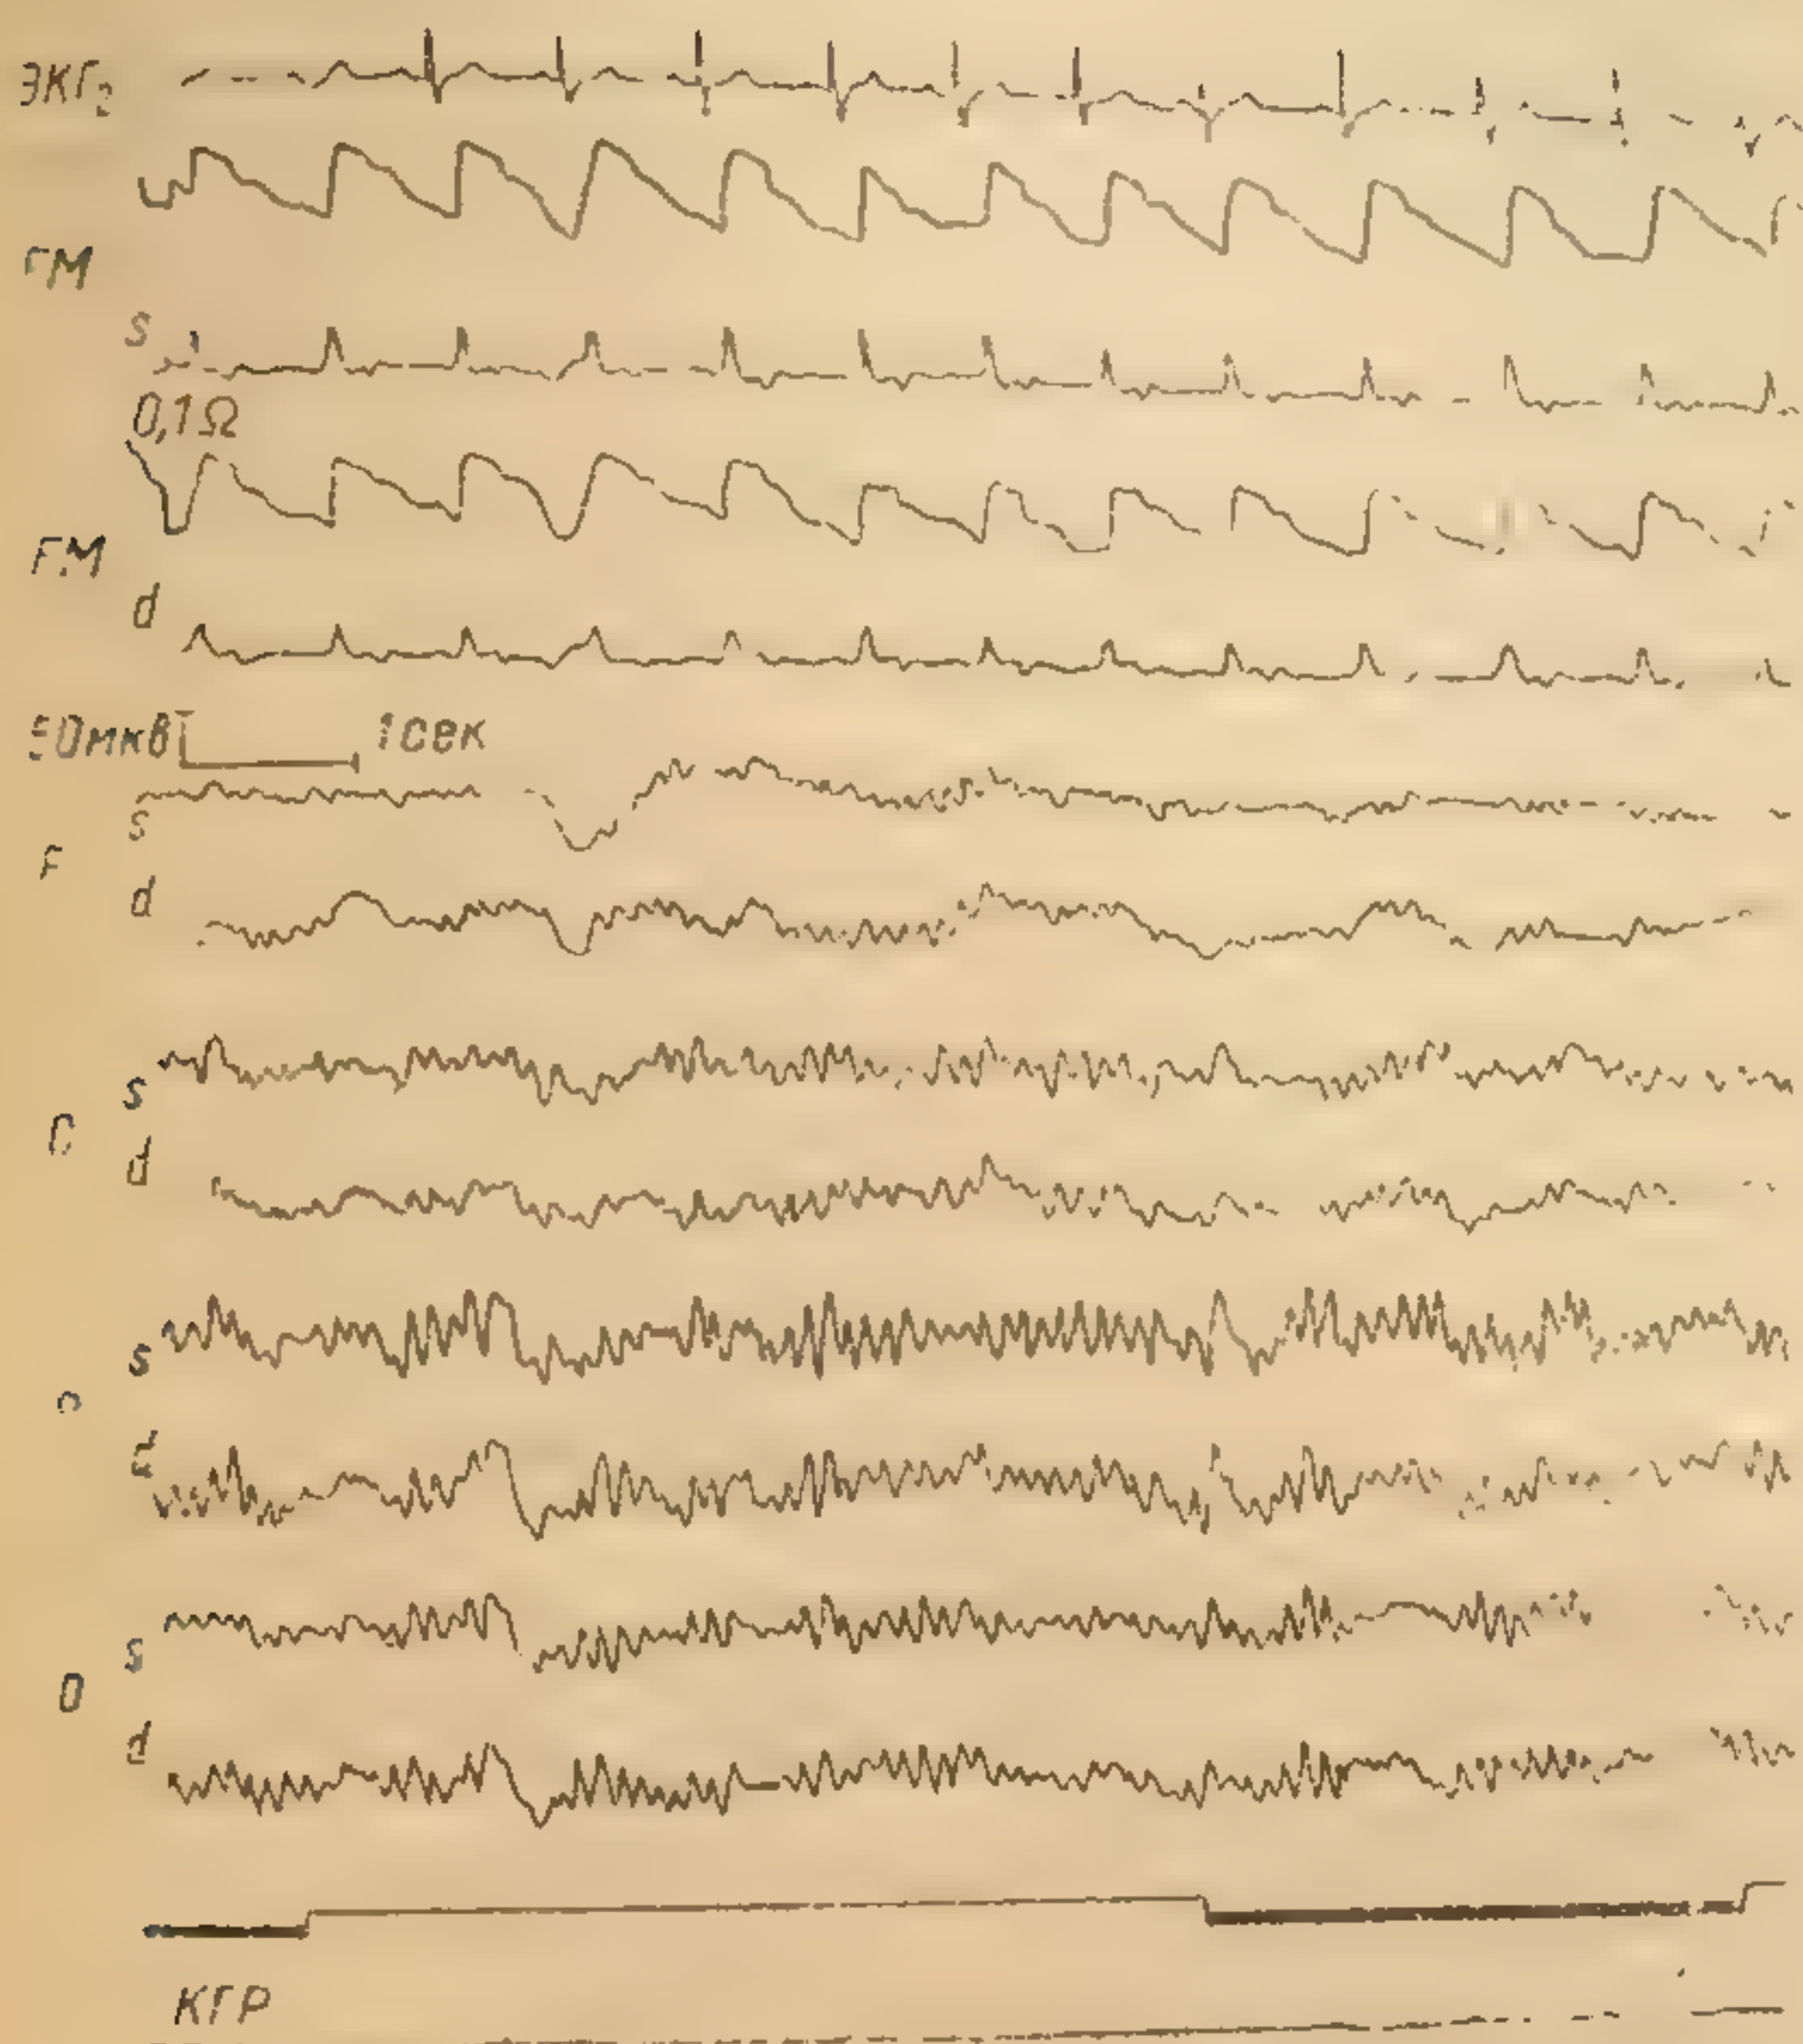 ЭКГ2
FM
s
0,1Ω
FM
d
50мкв 1сек
s
F
d
s
C
d
s
d
s
O
d
КГР